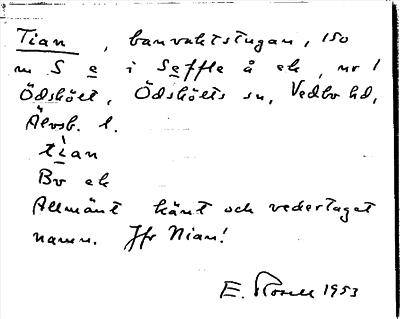 Tian, banvaktstugan, 150
m S e i Seffle å ek, nr 1
Ödskölt, Ödskölts sn, Vedbo hd,
Älvsb. l.
tìan
Bv ek
Allmänt känt och vedertaget
namn. Jfr Nian!
E. 1953